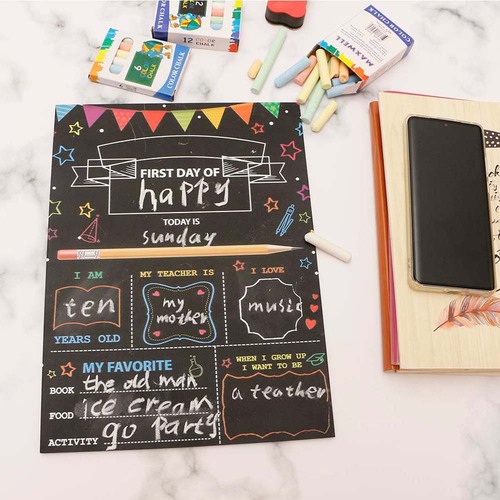 12 COLOR CHALK
6
COLOR CHALK
COLOR CHALK
COLOR CHALK
MAXWELL
FIRST DAY OF
happy
TODAY IS
sunday
I AM
ten
YEARS OLD
MY TEACHER IS
my
mother
I LOVE
music
MY FAVORITE
BOOK the old man
FOOD ice cream
ACTIVITY go party
WHEN I GROW UP
I WANT TO BE
a teather